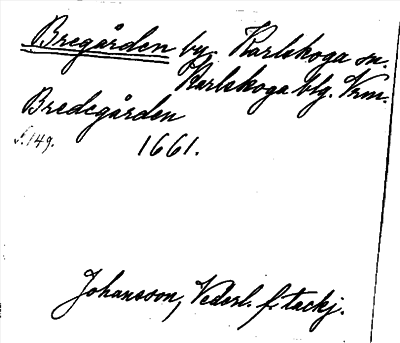 Bregården by. Karlskoga sn.
Karlskoga blg. Vrm.
Bredegården
s. 149. 1661.
Johansson, Vederl. f. tackj.